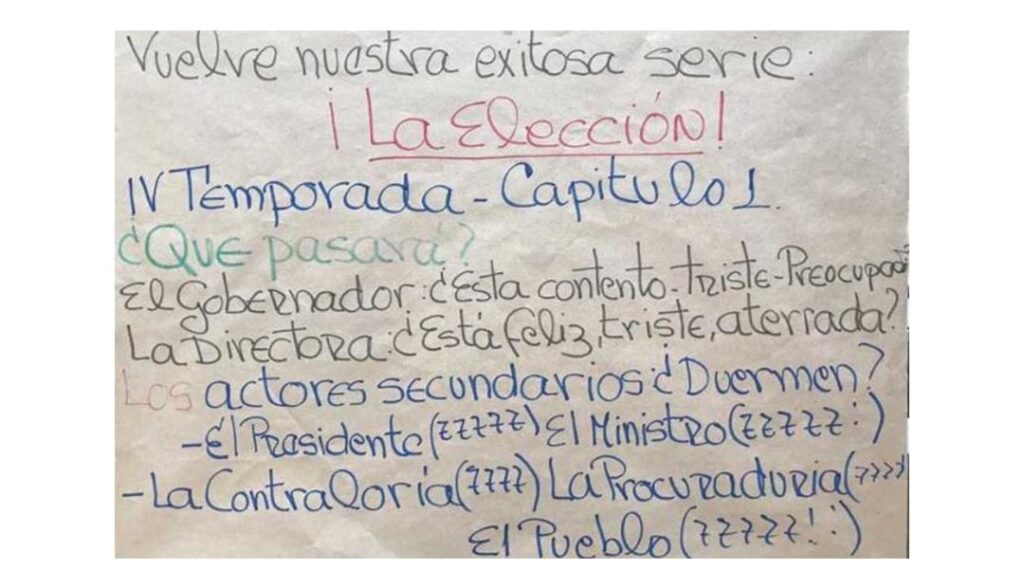 Vuelve nuestra exitosa serie:
¡La Elección!
IV Temporada - Capitulo 1.
¿Que pasará?
El Gobernador: ¿Esta contento - triste - Preocupado
La Directora: ¿Está feliz, triste, aterrada?
Los actores secundarios ¿Duermen?
- El Presidente (zzzzz) El Ministro (zzzzz:)
- La Contraloria (zzzz) La Procuraduria (zzzz
El Pueblo (zzzzz!:)